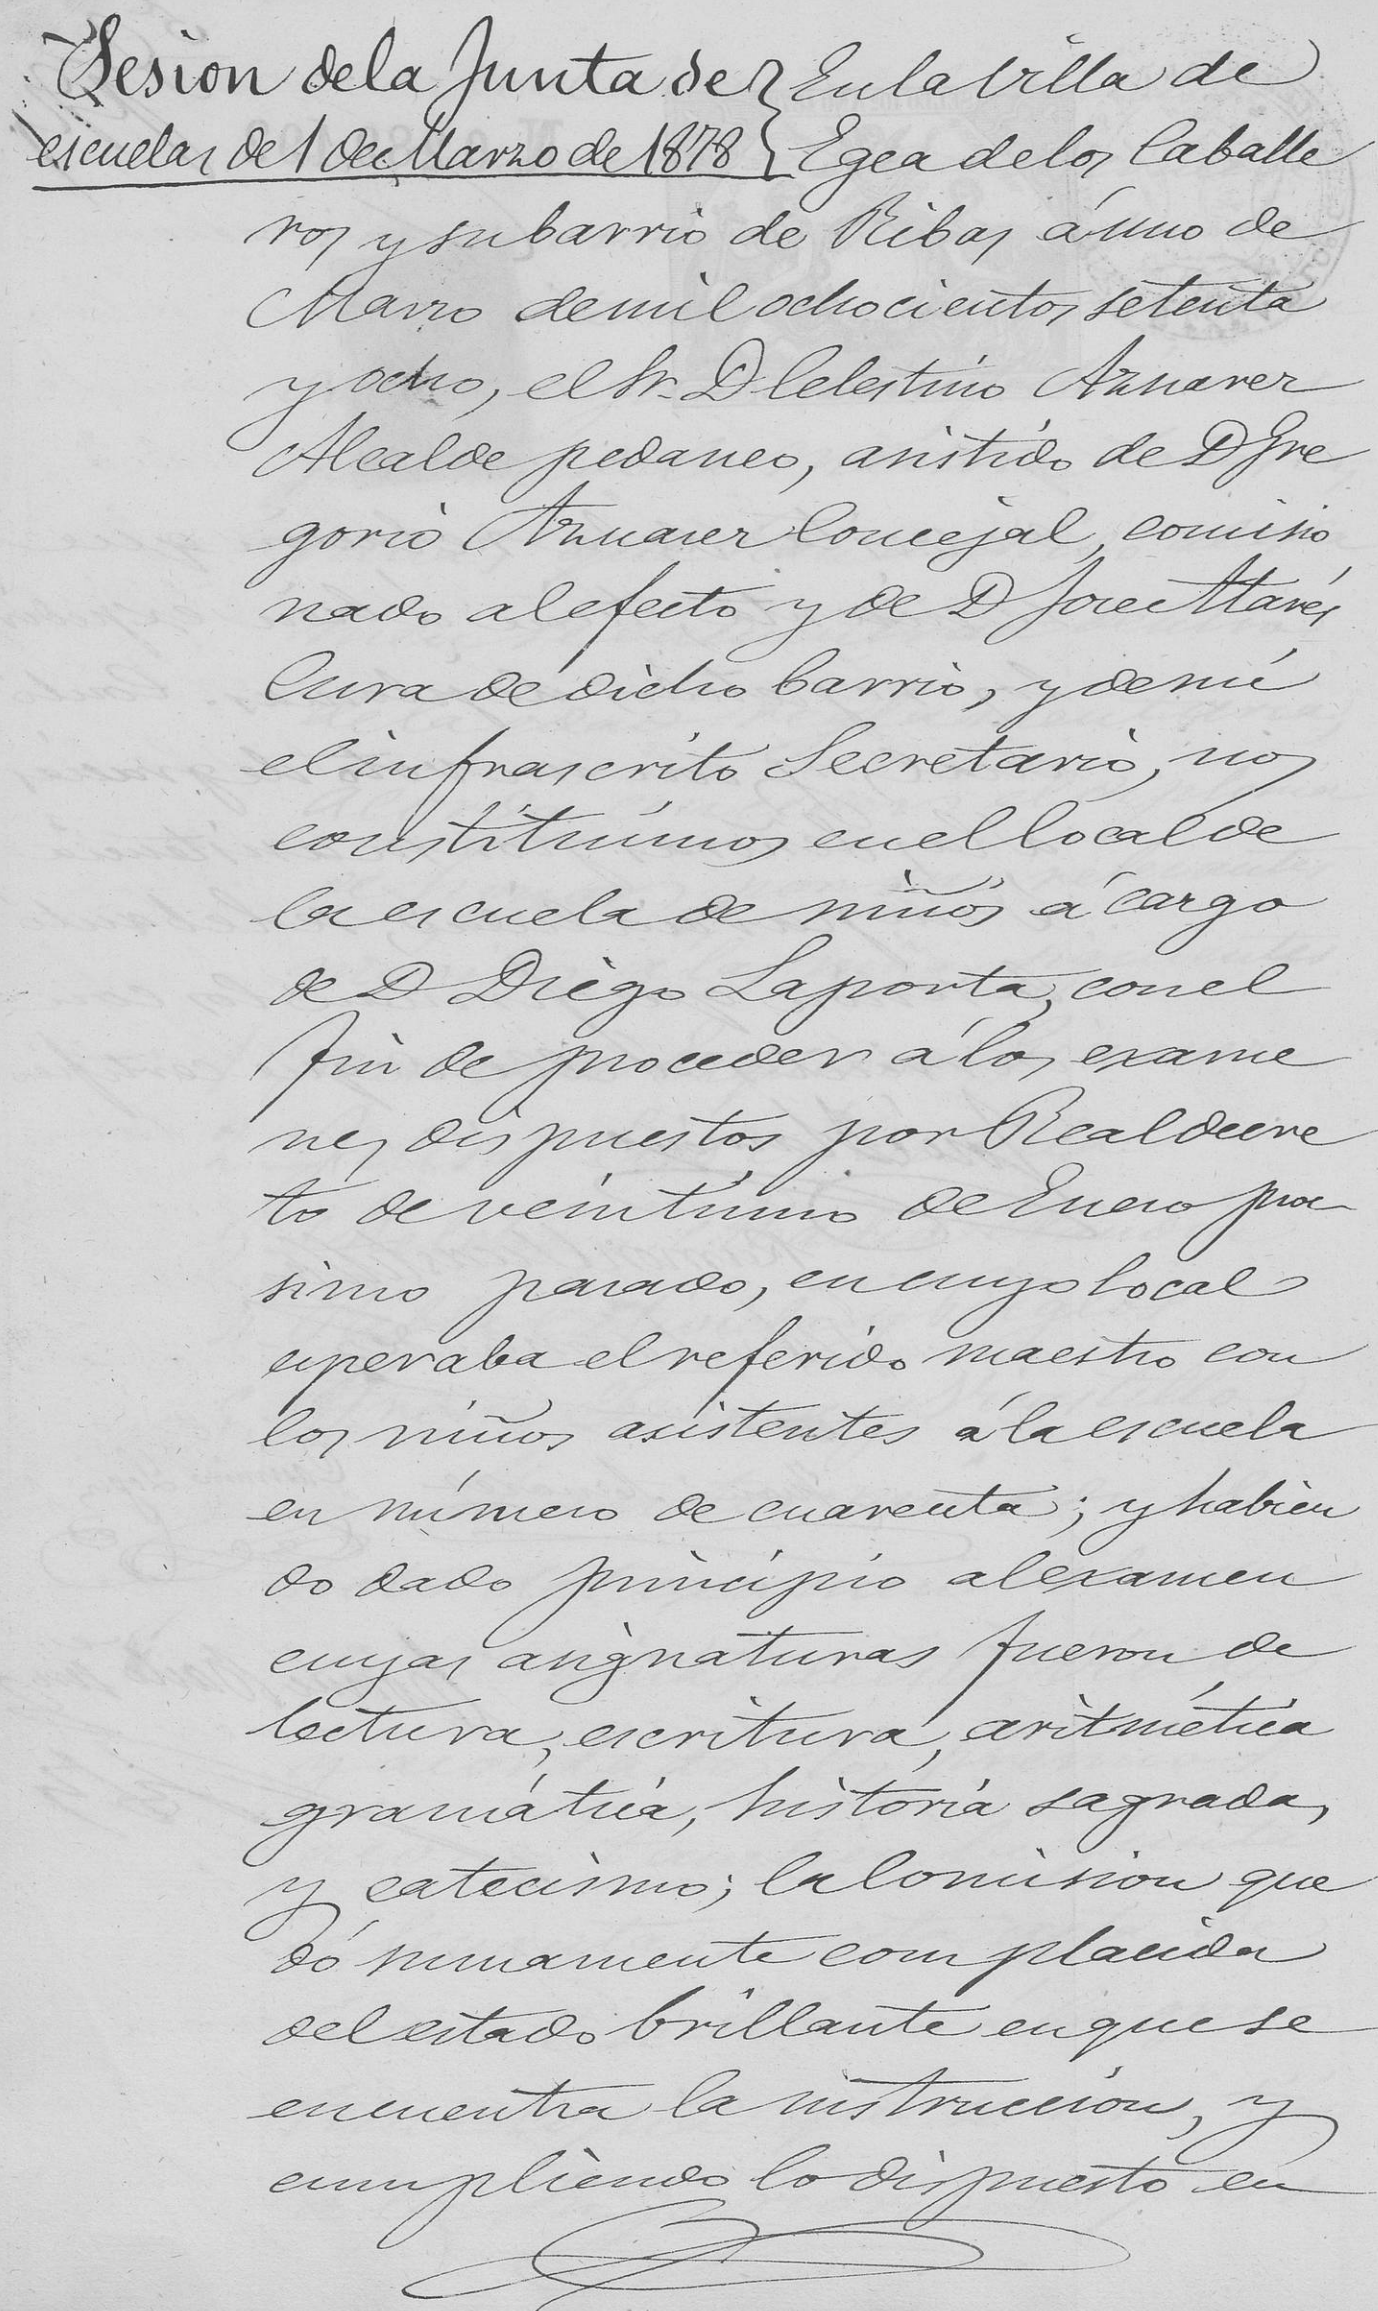 Sesion de la Junta de
escuelas de 1 de Marzo de 1878
En la Villa de
Egea de los Caballe
ros y su barrio de Ribas á uno de
Marzo de mil ochocientos setenta
y ocho, el Sr. D Celestino Aznarez
Alcalde pedaneo, asistido de D Gre
gorio Aznarez Concejal, comisio
nado al efecto y de D Jose Atarés
Cura de dicho barrio, y de mí
el infrascrito Secretario, nos
constituimos en el local de
la escuela de niños á cargo
de D Diego Laporta, con el
fin de proceder á los exame
nes dispuestos por Real decre
to de veintiuno de Enero pro
simo pasado, en cuyo local
esperaba el referido maestro con
los niños asistentes á la escuela
en número de cuarenta; y habien
do dado principio al examen
cuyas asignaturas fueron de
lectura, escritura, aritmética
gramática, historia sagrada,
y catecismo; la Comision que
dó sumamente complacida
del estado brillante en que se
encuentra la instruccion, y
cumpliendo lo dispuesto en